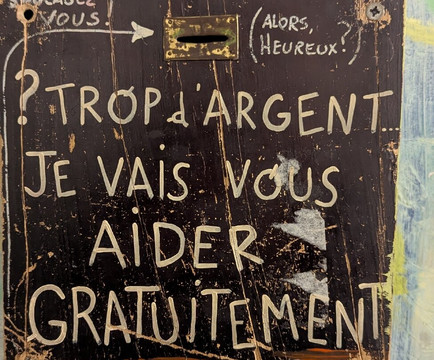 VOUS!
(ALORS,
HEUREUX?)
? TROP d'ARGENT...
JE VAIS VOUS
AIDER
GRATUITEMENT